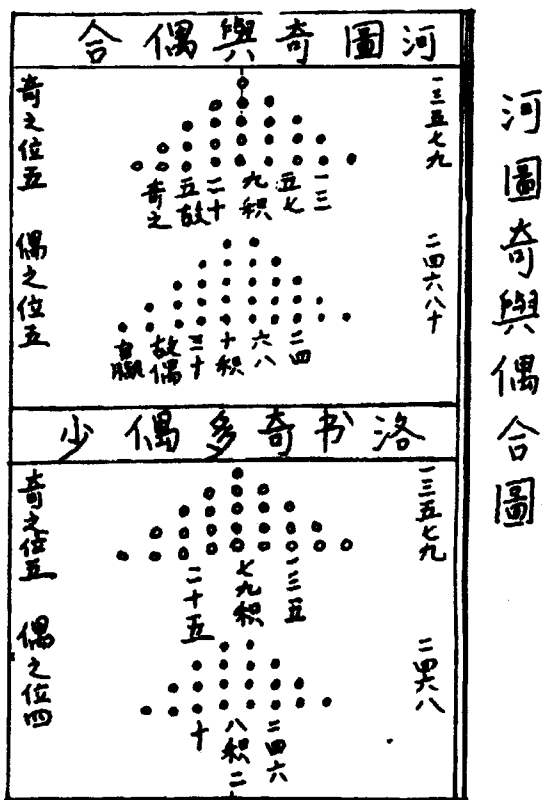 河圖奇與偶合圖
河圖奇與偶合
一三五七九
一三
五七
九积
二十
五故
奇之
奇之位五
二四六八十
二四
六八
十积
三十
故偶
偶之位五
洛书奇多偶少
一三五七九
一三五
七九积
二十五
奇之位五
二四六八
二四六
八积二
十
偶之位四